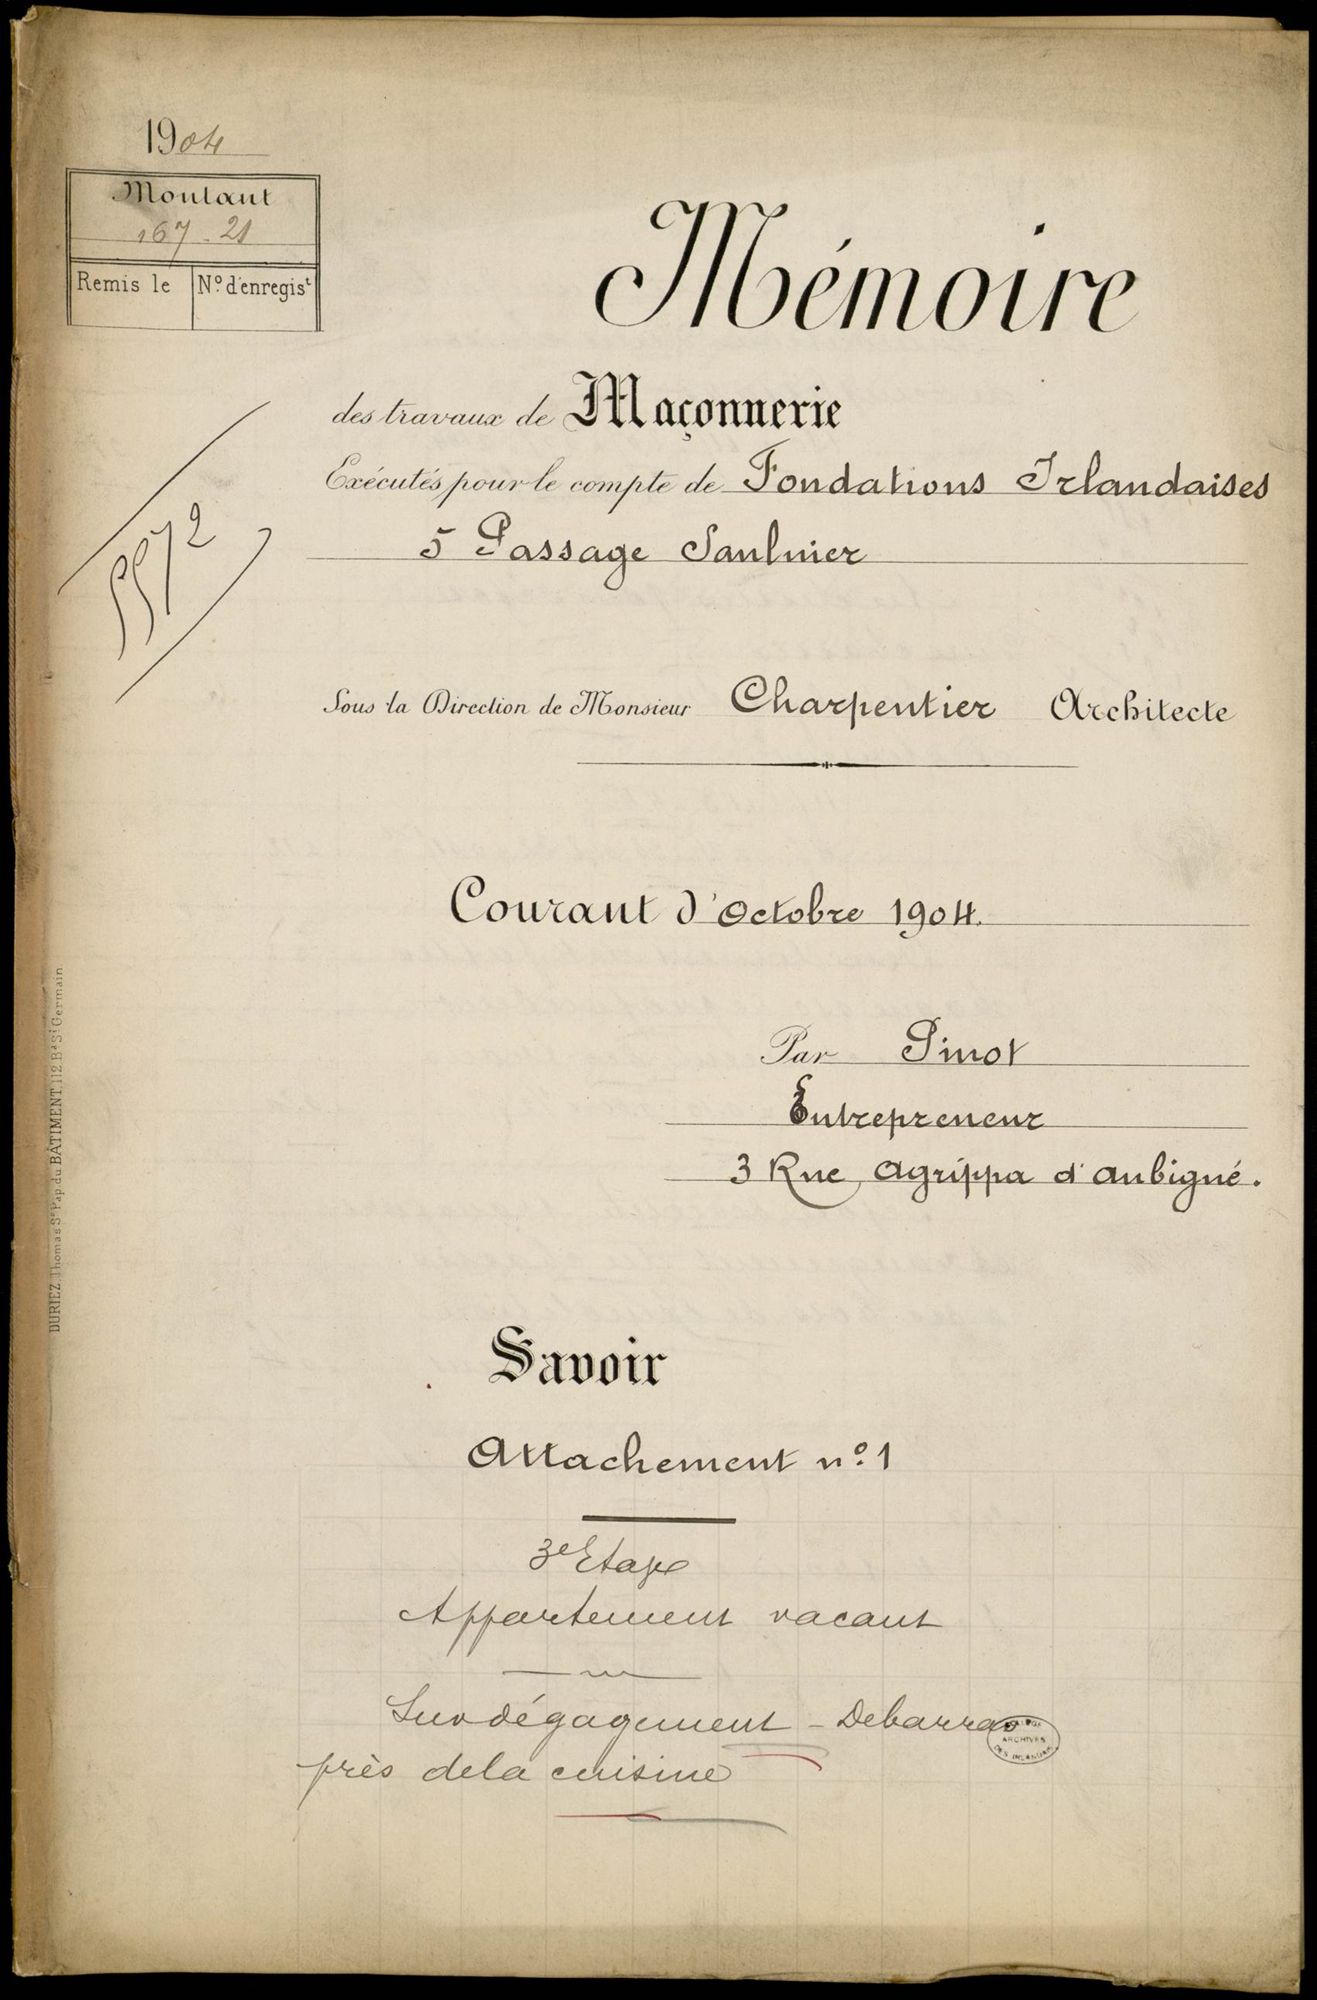 1904
Montant
167-21
Remis le
Nº d'enregist
Mémoire
des travaux de Maçonnerie
Exécutés pour le compte de Fondations Irlandaises
5 Passage Saulnier
5572
Sous la Direction de Monsieur Charpentier Architecte
Courant d'Octobre 1904.
Par Pinot
Entrepreneur
3 Rue Agrippa d'aubigné.
DURIEZ, Thomas Sr Pap. du BÂTIMENT, 112 Bd St Germain
Savoir
Attachement nº 1
3e Etage
Appartement vacant
Sur dégagement - Debarras
près dela cuisine
ARCHIVES
DES IRLANDAIS